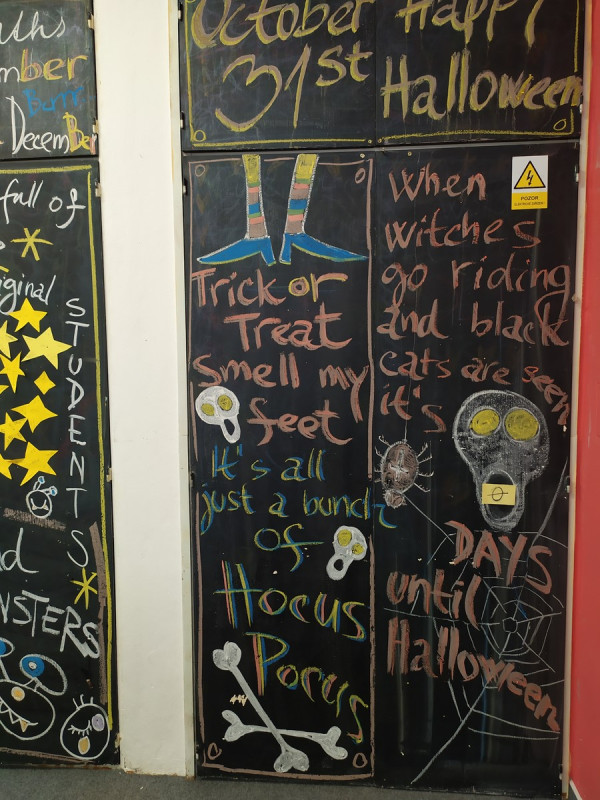 mber
Decem
full of
STUDENTS
NSTERS
October
31st
Happy
Halloween
Trick or
Treat
Smell my
feet
It's all
just a bunch
of
Hocus
Pocus
POZOR
When
witches
go riding
and black
cats are seen
it's
0
DAYS
until
Halloween